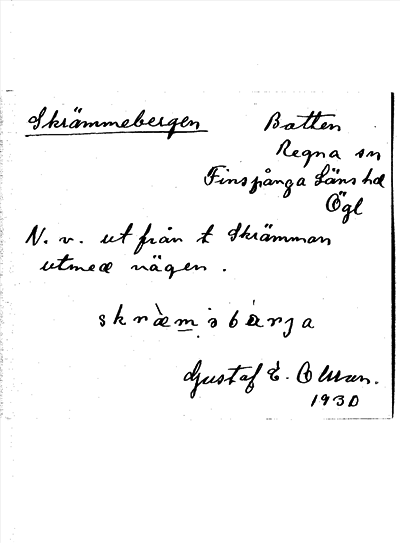 Skrämmebergen
Batten
Regna sn
Finspånga Läns hd
Ögl
N. v. ut från t Skrämman
utmed vägen.
skræ̀m̲əbárja
Gustaf E. Olman.
1930